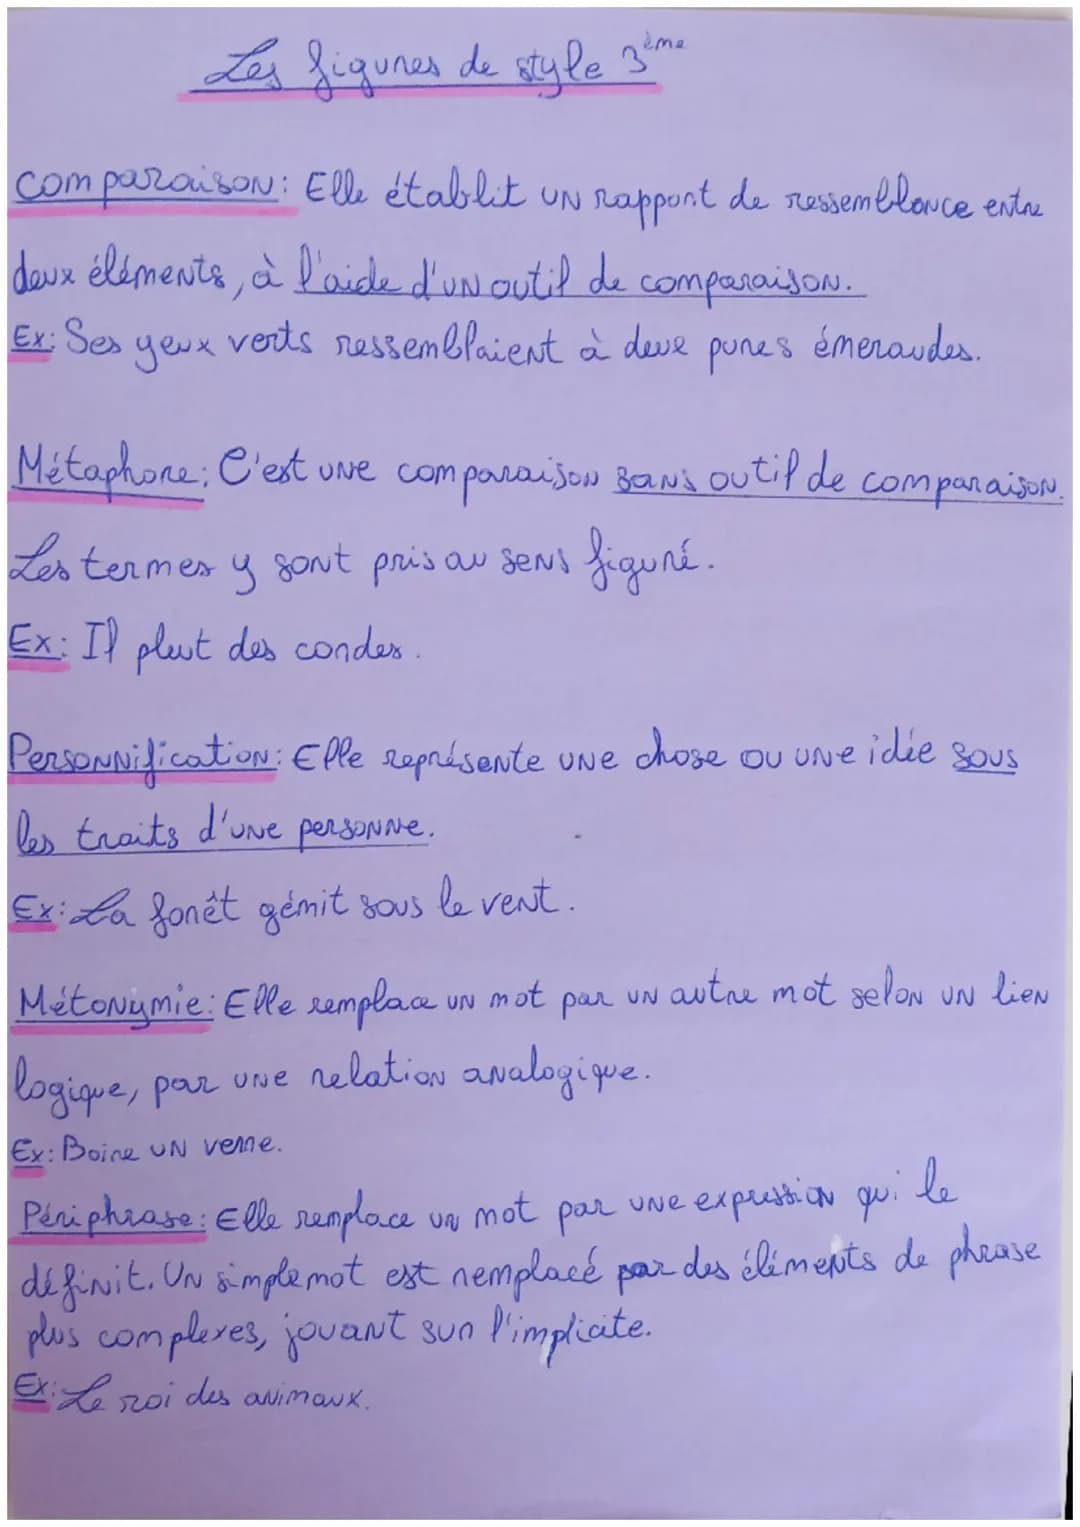 Les figures de style 3ème
Comparaison: Elle établit un rapport de ressemblance entre
deux éléments, à l'aide d'un outil de comparaison.
Ex: Ses yeux verts ressemblaient à deux pures émeraudes.
Métaphore: C'est une comparaison sans outil de comparaison.
Les termes y sont pris au sens figuré.
Ex: Il pleut des cordes.
Personnification: Elle représente une chose ou une idée sous
les traits d'une personne.
Ex: La forêt gémit sous le vent.
Métonymie: Elle remplace un mot par un autre mot selon un lien
logique, par une relation analogique.
Ex: Boire un verre.
Périphrase: Elle remplace un mot par une expression qui le
définit. Un simple mot est remplacé par des éléments de phrase
plus complexes, jouant sur l'implicite.
Ex: Le roi des animaux.